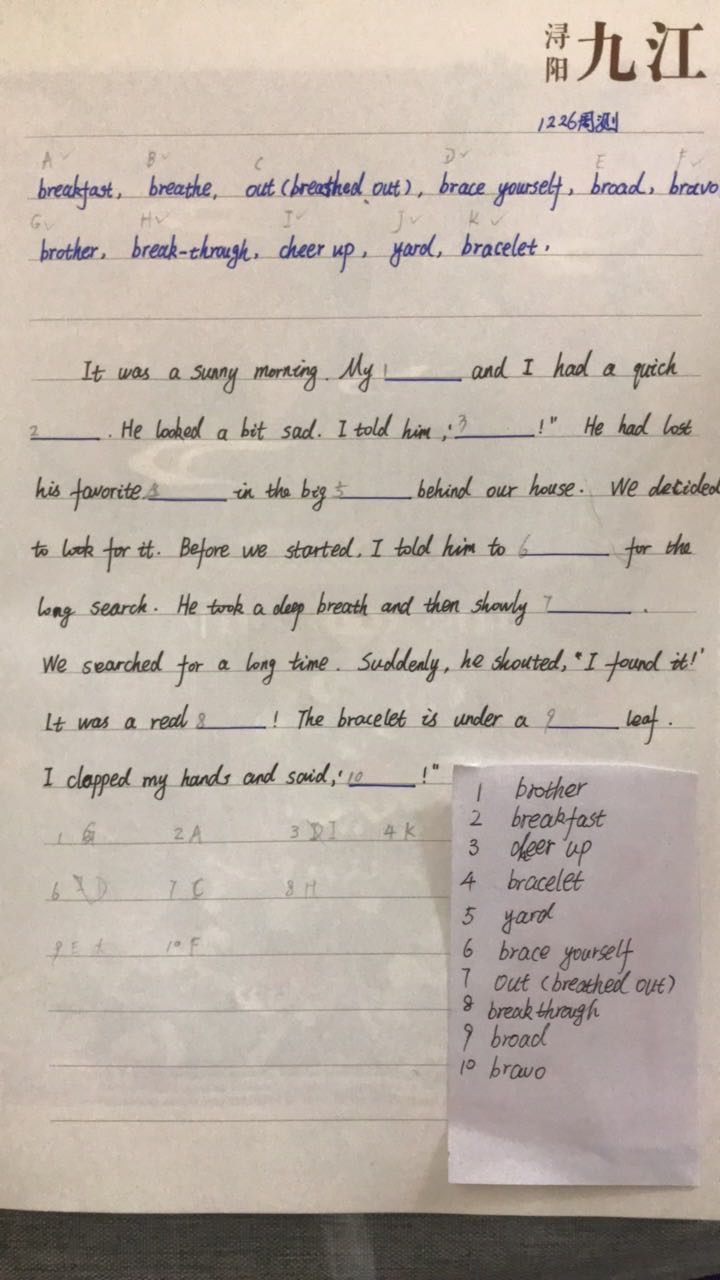 浔阳 九江
1226周测
A✓ B✓ C D✓ E F✓
breakfast, breathe, out (breathed out), brace yourself, broad, bravo
G✓ H✓ I✓ J✓ K✓
brother, break-through, cheer up, yard, bracelet.
It was a sunny morning. My 1______ and I had a quick
2______. He looked a bit sad. I told him, '3______!" He had lost
his favorite ______ in the big 5______ behind our house. We decided
to look for it. Before we started, I told him to 6______ for the
long search. He took a deep breath and then showly 7______.
We searched for a long time. Suddenly, he shouted, "I found it!'
It was a real 8______! The bracelet is under a 9______ leaf.
I clapped my hands and said, '10______!"
1 G 2 A 3 I 4 K
6 D 7 C 8 H
9 E 10 F
1 brother
2 breakfast
3 cheer up
4 bracelet
5 yard
6 brace yourself
7 out (breathed out)
8 breakthrough
9 broad
10 bravo